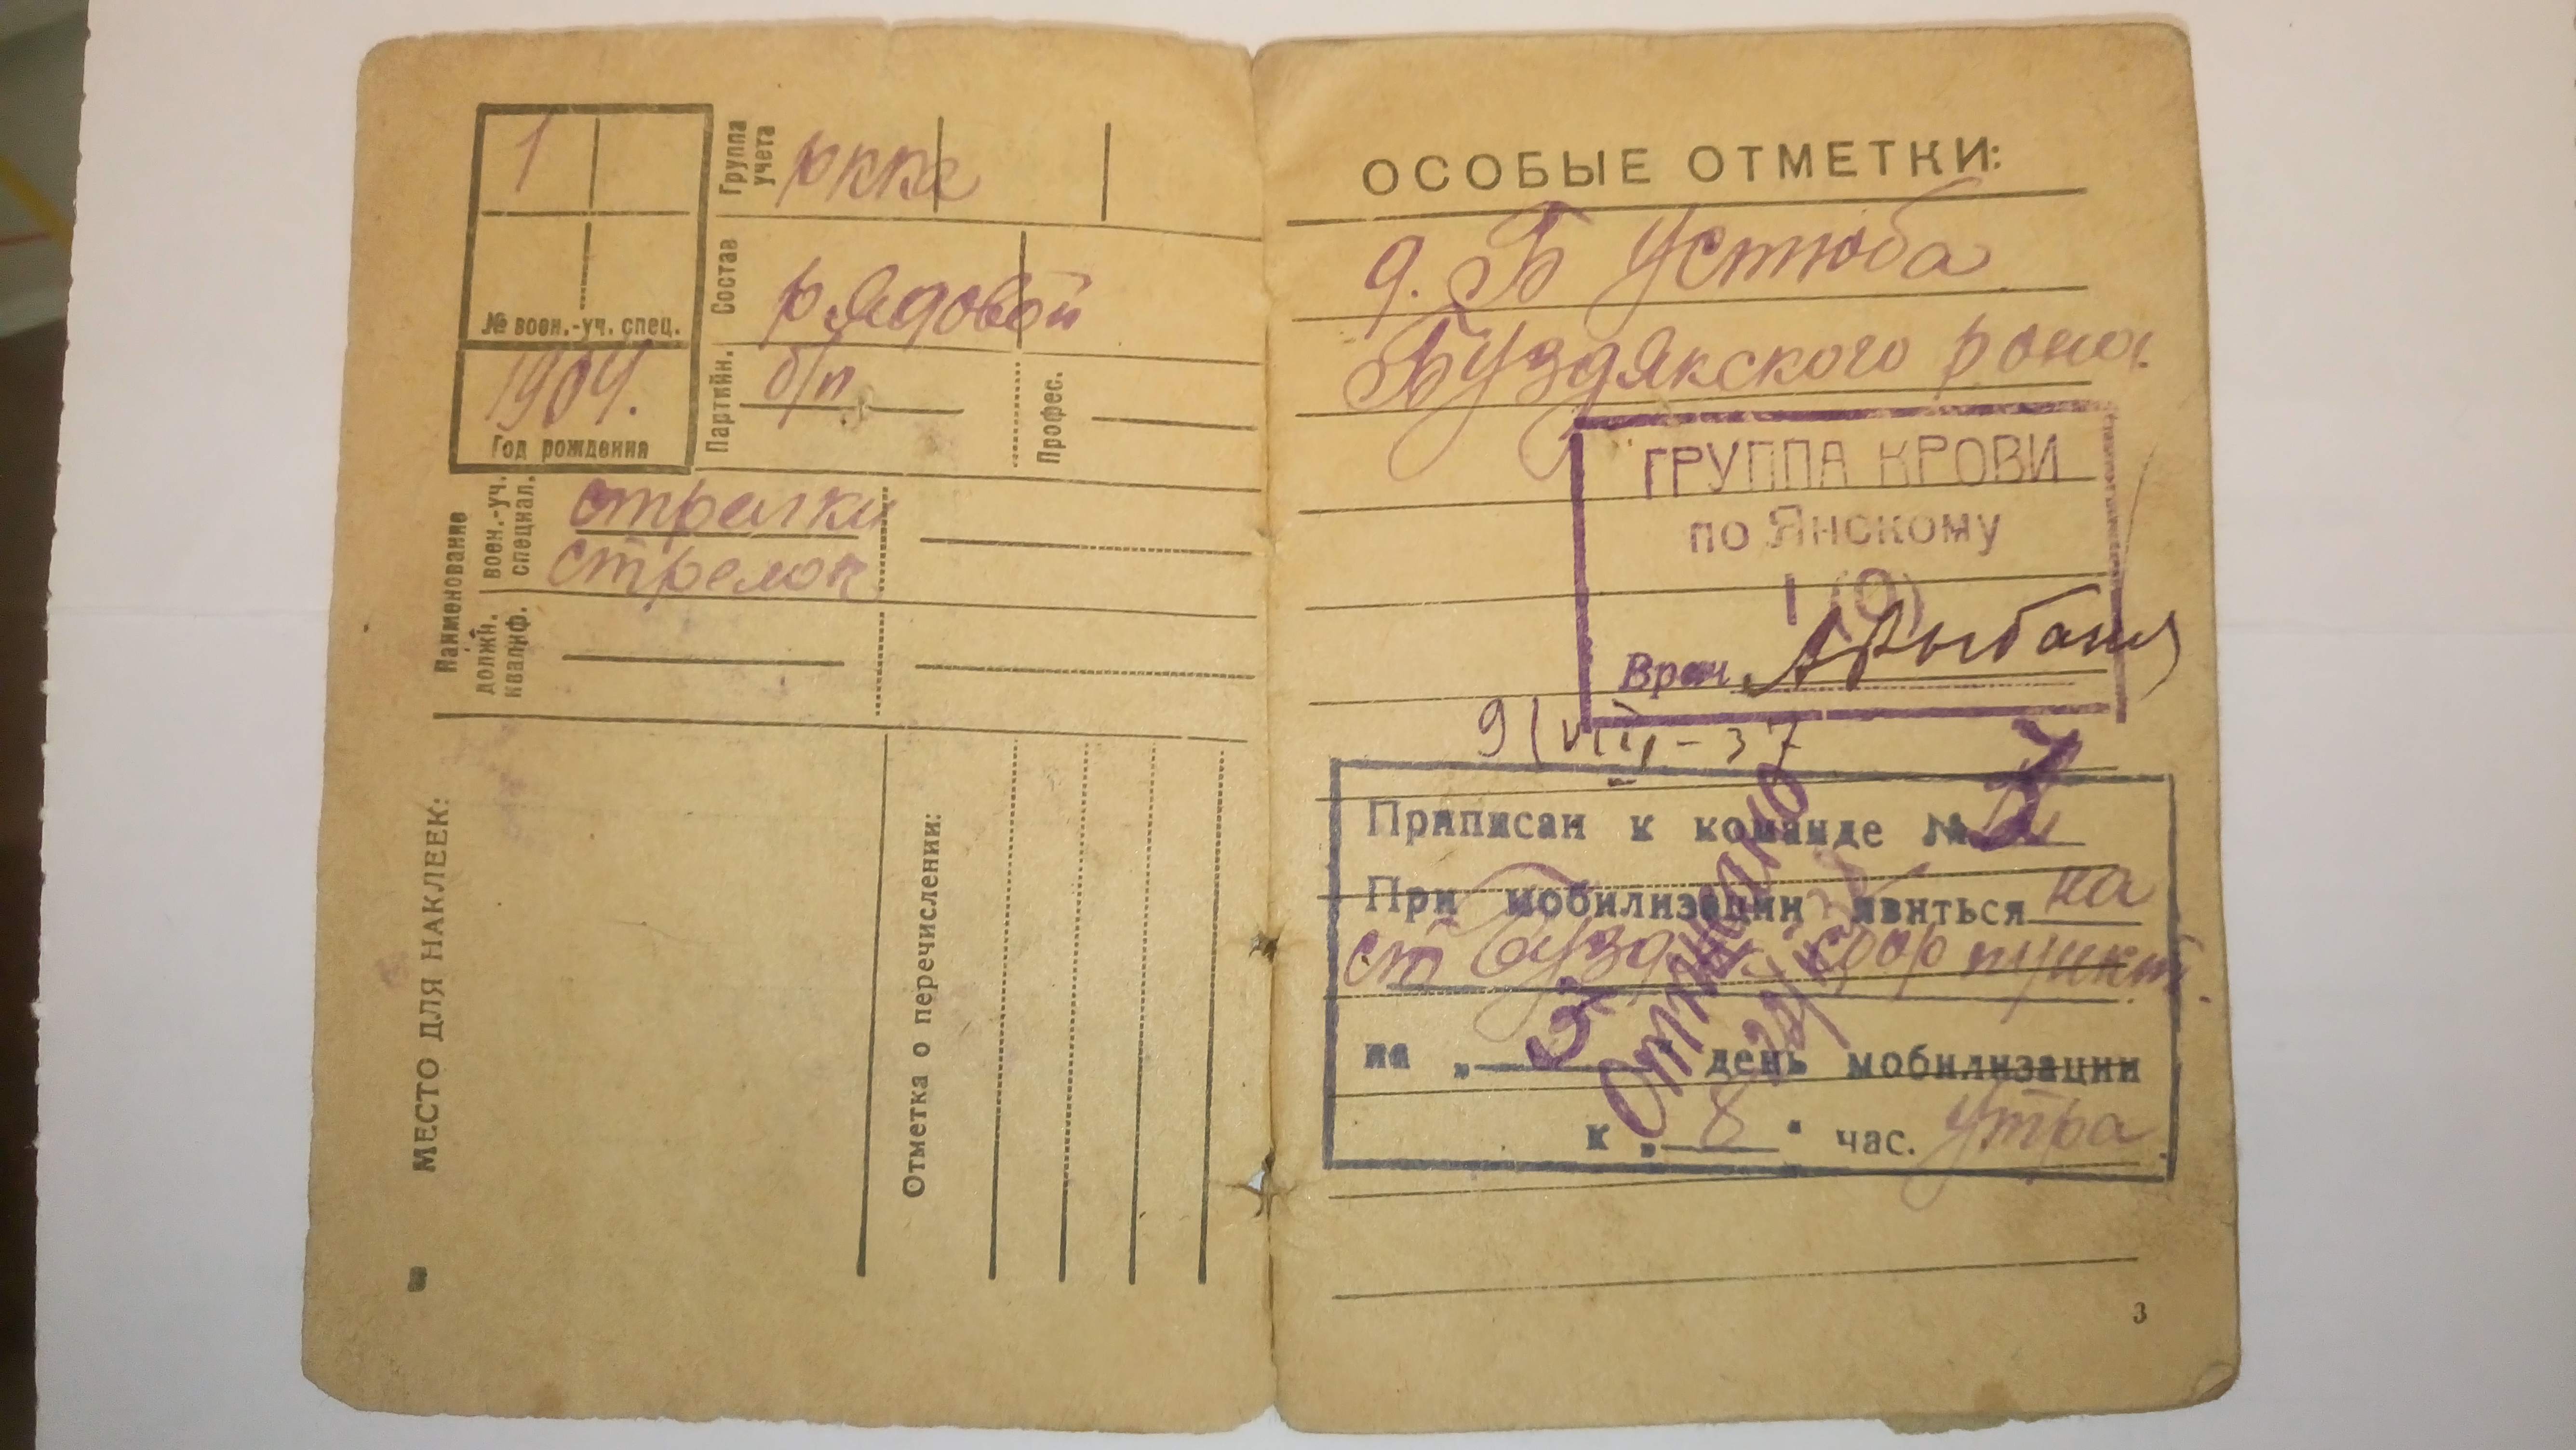 1
№ воен.-уч. спец.
1904.
Год рождения
Группа учета
РККА
Состав
рядовой
Партийн.
б/п
Профес.
Наименование
воен.-уч. специал.
стрелки
стрелок
должн. квалиф.
МЕСТО ДЛЯ НАКЛЕЕК:
Отметка о перечислении:
ОСОБЫЕ ОТМЕТКИ:
д. Б Устюба
Буздякского района.
ГРУППА КРОВИ
по Янскому
I (0)
Врач
9/VIII-37
Приписан к команде №
При мобилизации явиться на
ст Буздяк сбор пункт.
на „ 3 " день мобилизации
к „ 8 " час. утра
Отметка
3